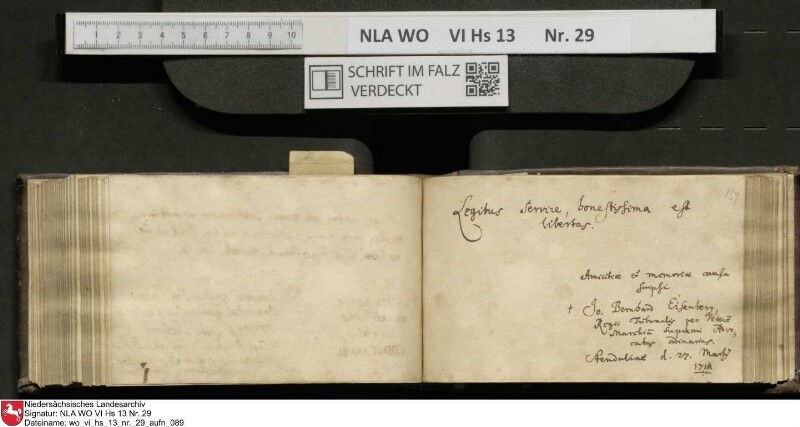 1 2 3 4 5 6 7 8 9 10
NLA WO VI Hs 13 Nr. 29
SCHRIFT IM FALZ
VERDECKT
167
Legibus servire, honestissima est
libertas.
Amicitiae & memoriae causa
scripsi
† Jo. Bernhard Eisenberg
Regii Tribunalis per Veterem
Marchiam supremi Advo,
catus ordinarius.
Stendaliae d. 27. Martÿ
Niedersächsisches Landesarchiv
Signatur: NLA WO VI Hs 13 Nr. 29
Dateiname: wo_vi_hs_13_nr._29_aufn_089